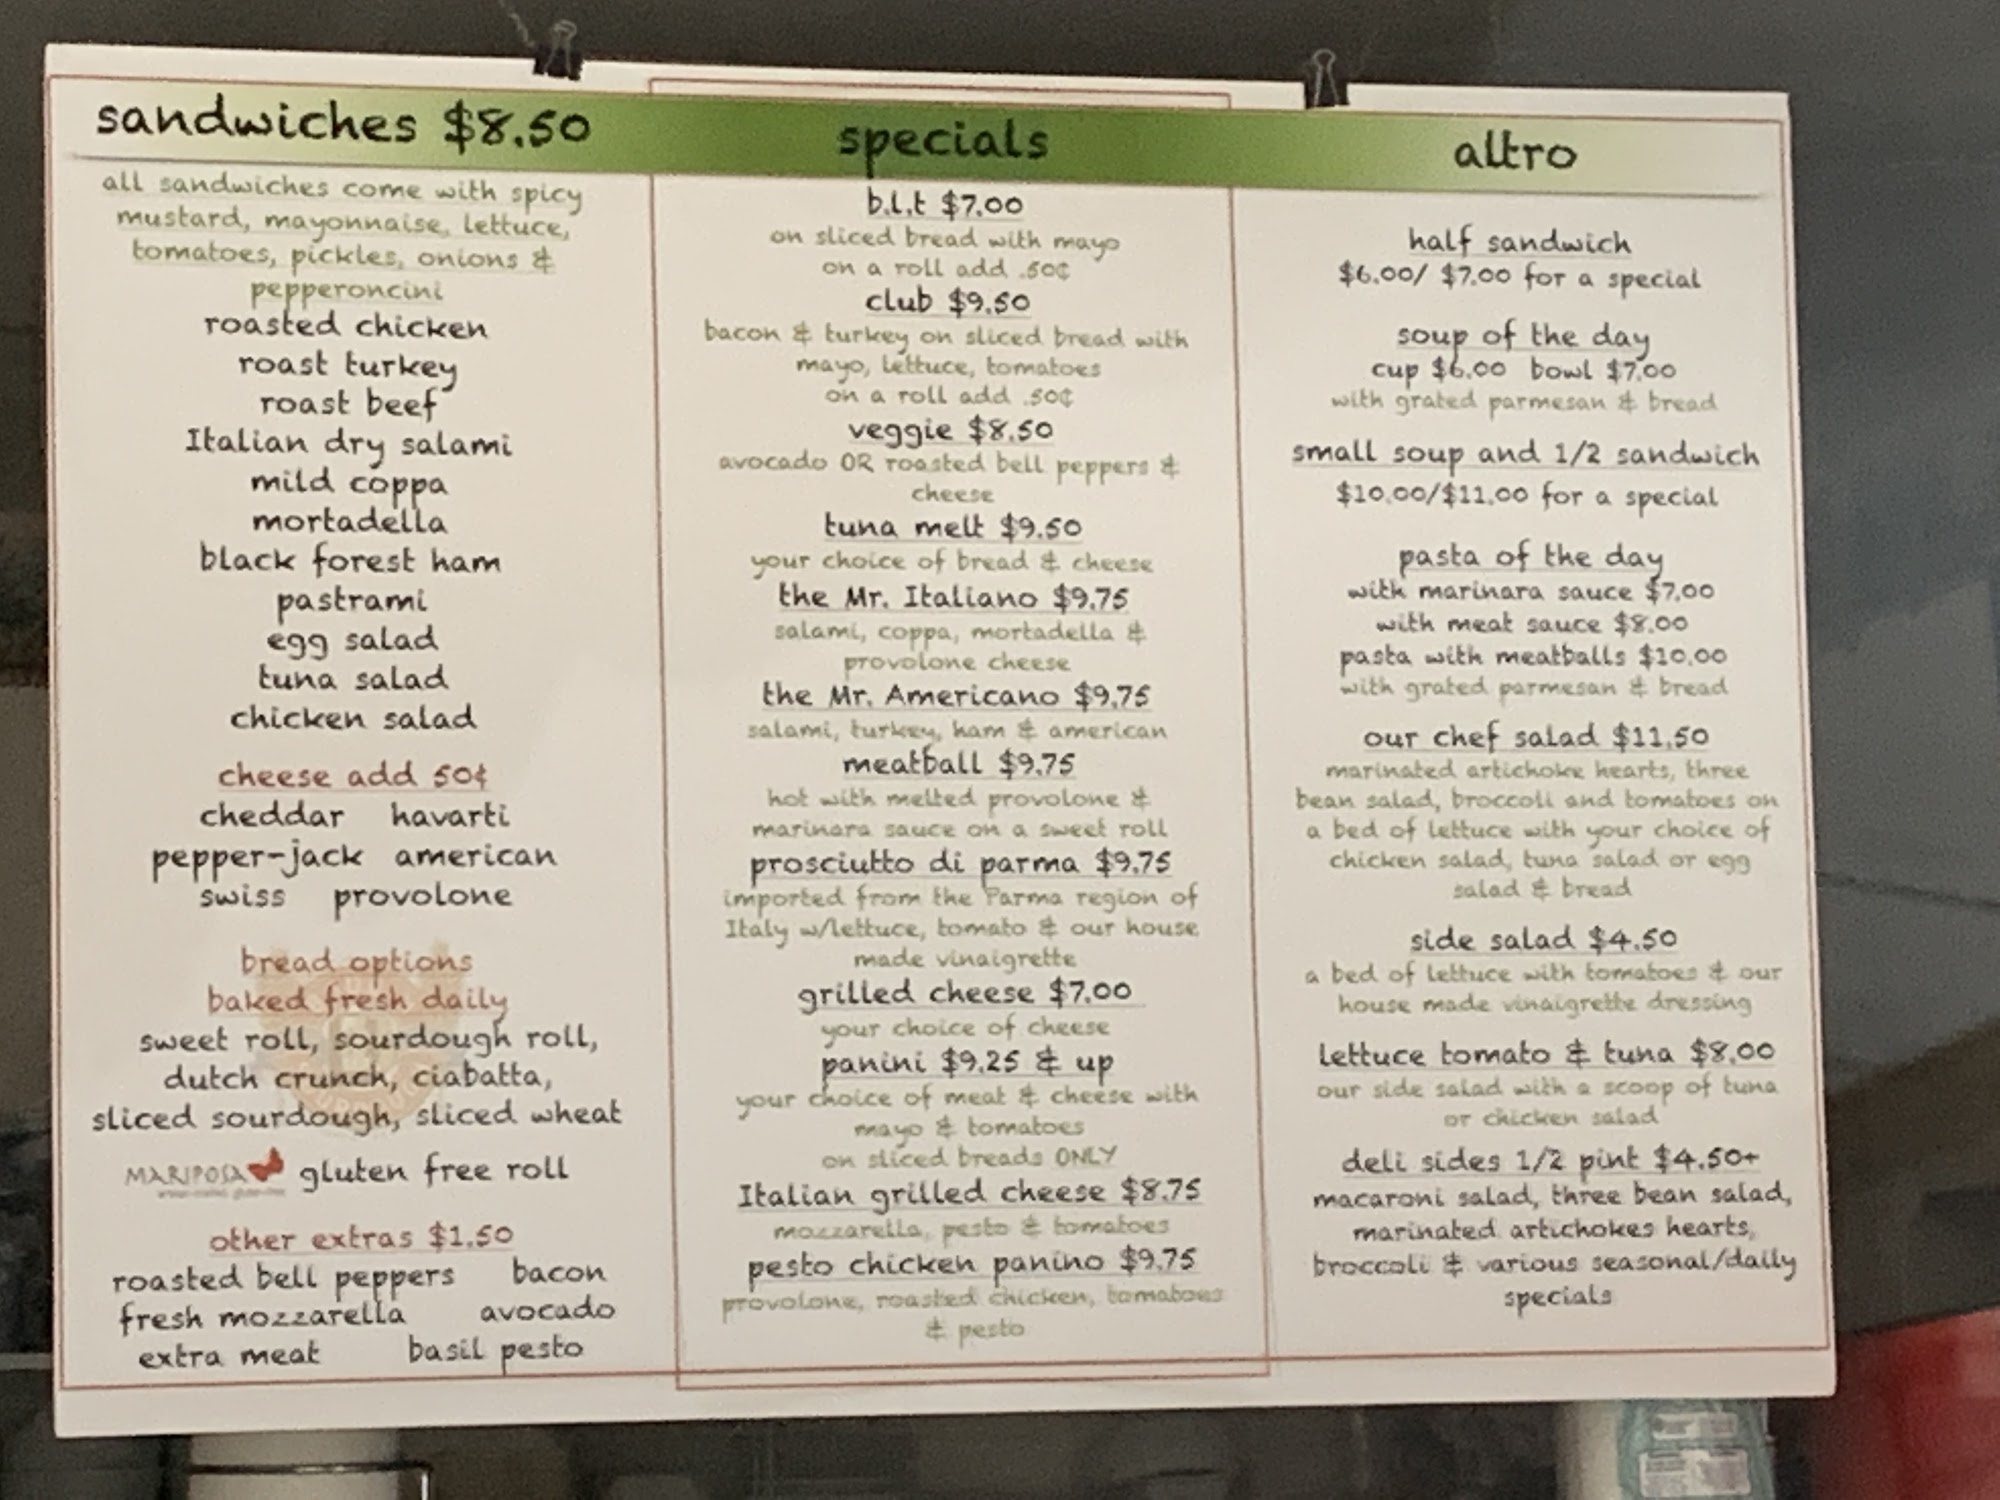 sandwiches $8.50
all sandwiches come with spicy
mustard, mayonnaise, lettuce,
tomatoes, pickles, onions &
pepperoncini
roasted chicken
roast turkey
roast beef
Italian dry salami
mild coppa
mortadella
black forest ham
pastrami
egg salad
tuna salad
chicken salad
cheese add 50¢
cheddar havarti
pepper-jack american
swiss provolone
bread options
baked fresh daily
sweet roll, sourdough roll,
dutch crunch, ciabatta,
sliced sourdough, sliced wheat
MARIPOSA gluten free roll
other extras $1.50
roasted bell peppers bacon
fresh mozzarella avocado
extra meat basil pesto
specials
b.l.t $7.00
on sliced bread with mayo
on a roll add .50¢
club $9.50
bacon & turkey on sliced bread with
mayo, lettuce, tomatoes
on a roll add .50¢
veggie $8.50
avocado OR roasted bell peppers &
cheese
tuna melt $9.50
your choice of bread & cheese
the Mr. Italiano $9.75
salami, coppa, mortadella &
provolone cheese
the Mr. Americano $9.75
salami, turkey, ham & american
meatball $9.75
hot with melted provolone &
marinara sauce on a sweet roll
prosciutto di parma $9.75
imported from the Parma region of
Italy w/lettuce, tomato & our house
made vinaigrette
grilled cheese $7.00
your choice of cheese
panini $9.25 & up
your choice of meat & cheese with
mayo & tomatoes
on sliced breads ONLY
Italian grilled cheese $8.75
mozzarella, pesto & tomatoes
pesto chicken panino $9.75
provolone, roasted chicken, tomatoes
& pesto
altro
half sandwich
$6.00/ $7.00 for a special
soup of the day
cup $6.00 bowl $7.00
with grated parmesan & bread
small soup and 1/2 sandwich
$10.00/$11.00 for a special
pasta of the day
with marinara sauce $7.00
with meat sauce $8.00
pasta with meatballs $10.00
with grated parmesan & bread
our chef salad $11.50
marinated artichoke hearts, three
bean salad, broccoli and tomatoes on
a bed of lettuce with your choice of
chicken salad, tuna salad or egg
salad & bread
side salad $4.50
a bed of lettuce with tomatoes & our
house made vinaigrette dressing
lettuce tomato & tuna $8.00
our side salad with a scoop of tuna
or chicken salad
deli sides 1/2 pint $4.50+
macaroni salad, three bean salad,
marinated artichokes hearts,
broccoli & various seasonal/daily
specials